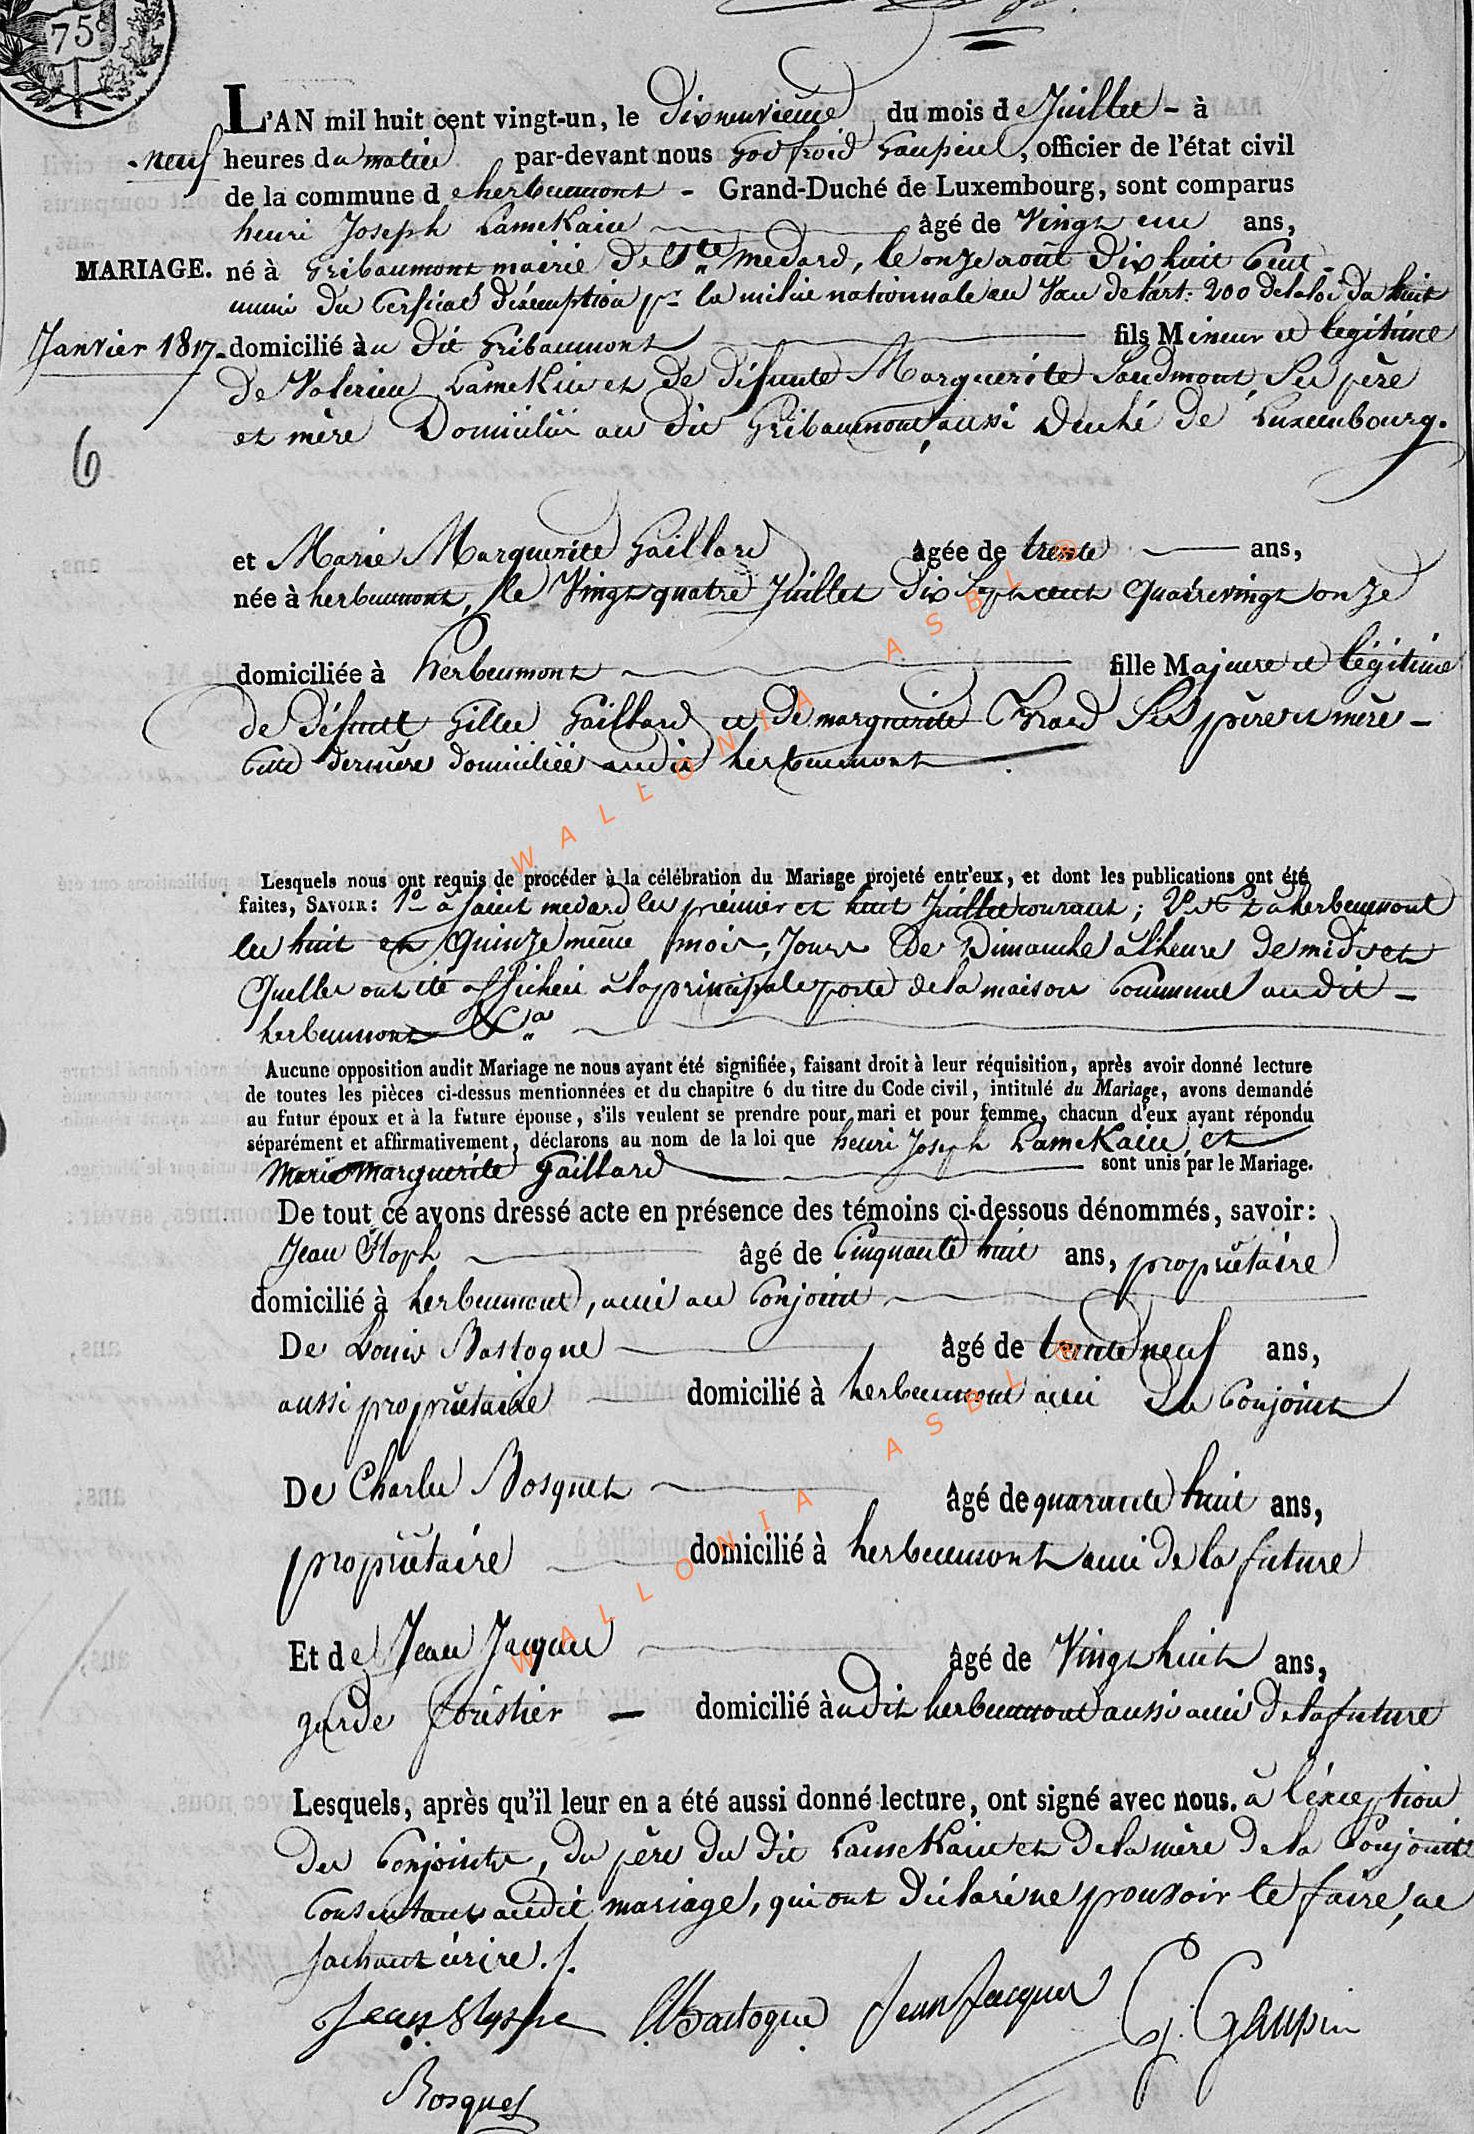 75c
L'AN mil huit cent vingt-un, le dixneuvieme du mois de Juillet - à
neuf heures du matin par-devant nous Godfroid Gaupin, officier de l'état civil
de la commune de herbeumont - Grand-Duché de Luxembourg, sont comparus
henri Joseph Lamekain âgé de Vingt un ans,
MARIAGE. né à Gribaumont mairie de Ste medard, le onze août dix huit Cent
muni du Certificat d'éxemption pr la milice nationnale au Vau de l'art: 200 de la loi du huit
Janvier 1817. domicilié au dit Gribaumont fils Mineur et legitime
de Valerien Lamekin et de défunte Marguerite Saudmont Ses père
6
et mère Domiciliés au dit Gribaumont, aussi Duché de Luxembourg.
et Marie Marguerite Gaillard âgée de trente ans,
née à herbeumont, le Vingt quatre Juillet dix Sept cent quatrevingt onze
domiciliée à herbeumont fille Majeure et légitime
de défunt Gille Gaillard et de marguerite Ses père et mère -
Cette dernière domiciliée audit herbeumont
Lesquels nous ont requis de procéder à la célébration du Mariage projeté entr'eux, et dont les publications ont été
faites, SAVOIR: 1° à Saint medard les premier et huit Juillet courant; 2° à herbeumont
les huit et Quinze même mois, Jours de Dimanche à l'heure de midi et
Quelles ont été affichées à la principale porte de la maison Commune audit -
herbeumont &ca
Aucune opposition audit Mariage ne nous ayant été signifiée, faisant droit à leur réquisition, après avoir donné lecture
de toutes les pièces ci-dessus mentionnées et du chapitre 6 du titre du Code civil, intitulé du Mariage, avons demandé
au futur époux et à la future épouse, s'ils veulent se prendre pour mari et pour femme, chacun d'eux ayant répondu
séparément et affirmativement, déclarons au nom de la loi que henri Joseph Lamekain et
Marie Marguerite Gaillard sont unis par le Mariage.
De tout ce avons dressé acte en présence des témoins ci-dessous dénommés, savoir:
Jean âgé de Cinquante huit ans, propriétaire
domicilié à herbeumont, ami au Conjoint
De Louis Bastogne âgé de trente neuf ans,
aussi propriétaire domicilié à herbeumont ami du Conjoint
De Charles Bosquet âgé de quarante huit ans,
propriétaire domicilié à herbeumont ami de la future
Et de Jean Jacques âgé de Vingt huit ans,
garde forestier - domicilié audit herbeumont aussi ami de la future
Lesquels, après qu'il leur en a été aussi donné lecture, ont signé avec nous. à l'éxception
des Conjoints, du père du dit Lamekain et de la mère de la Conjointe
Consentans audit mariage, qui ont déclaré ne pouvoir le faire, ne
sachant écrire./.
Jean Bastogne Jean Jacques G. Gaupin
Bosquet
WALLONIA ASBL ®
WALLONIA ASBL ®